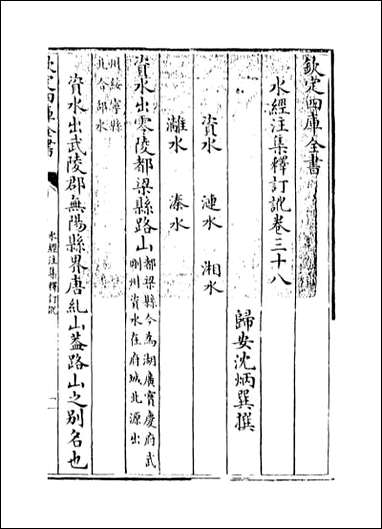 欽定四庫全書
水經注集釋訂訛卷三十八
歸安沈炳巽撰
資水　漣水　湘水
灕水　溱水
資水出零陵都梁縣路山都梁縣今為湖廣寶慶府武
剛州資水在府城北源出
州綏寧縣
北合邵水
資水出武陵郡無陽縣界唐糺山葢路山之別名也
欽定四庫全書
水經注集釋訂訛
一